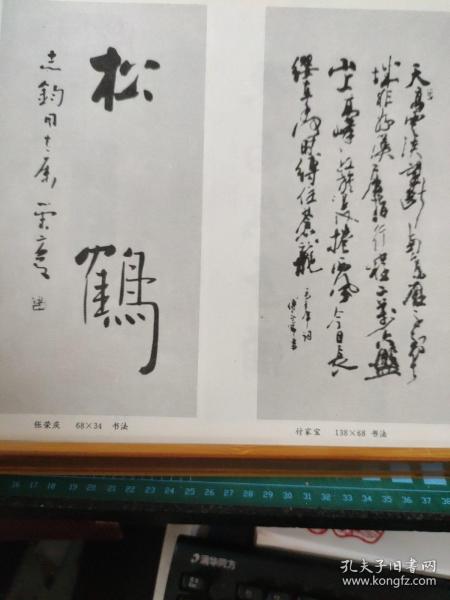 松鹤
志钧同志属
天高雲淡望断南飞雁不到长
城非好漢屈指行程二万六盤
山上高峰红旗漫捲西风今日长
缨在手何时缚住苍龍
毛主席词
张荣庆 68×34 书法
付家宝 138×68 书法
16 17 18 19 20 21 22 23 24 25 26 27 28 29 30 31 32 33 34 35 36 37 38
清华同方
孔夫子旧书网
www.kongfz.com